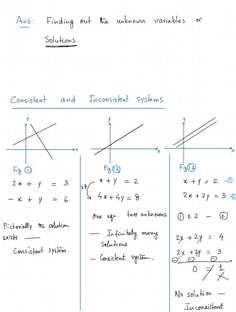 Ans: Finding out the unknown variables or
Solutions.
Consistent and Inconsistent systems
y
x
Fig 1
2x + y = 3
- x + y = 6
Pictorially no solution
exists —
Consistent system
y
x
Fig 2
x + y = 2
x4
4x + 4y = 8
one eqn. two unknowns
— Infinitely many
solutions
— Consistent system.
y
x
Fig 3
x + y = 2 — 1
2x + 2y = 3 — 2
1 x 2 — 2
2x + 2y = 4
2x + 2y = 3
0 = 1
No solution —
Inconsistent